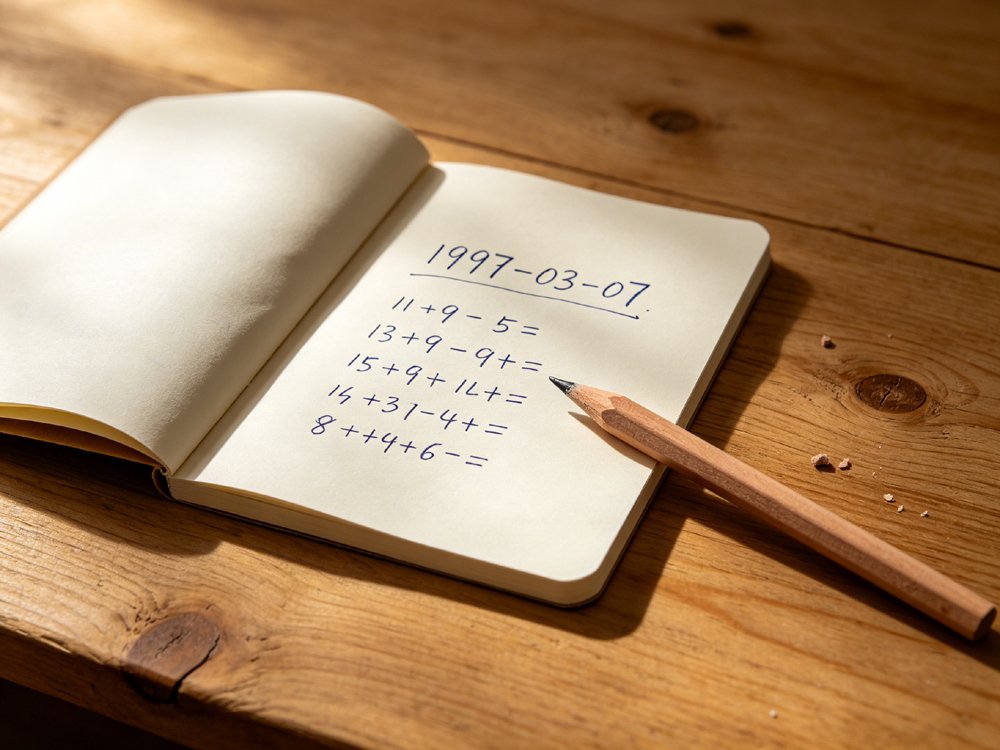 1997-03-07.
11+9-5=
13+9-9+=
15+9+1L+=
14+31-4+=
8++4+6--=